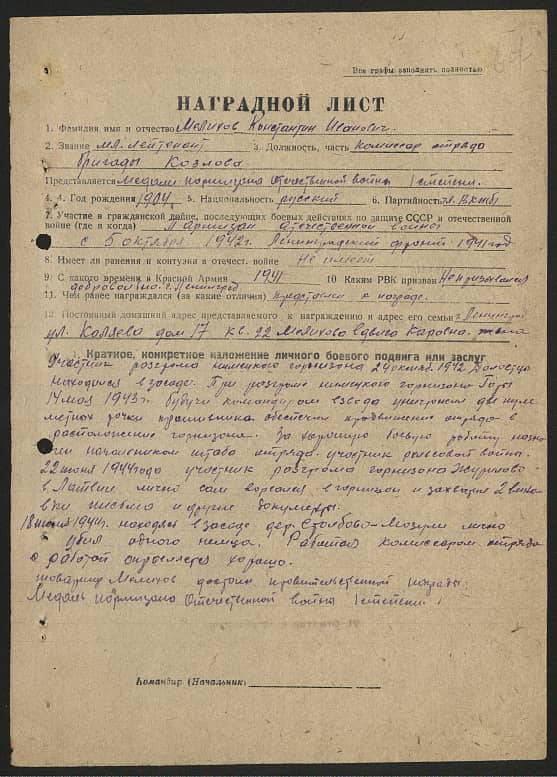 Все графы заполнять полностью
НАГРАДНОЙ ЛИСТ
1. Фамилия имя и отчество Мелихов Константин Иванович.
2. Звание мл. лейтенант 3. Должность, часть комиссар отряда
бригады Козлова.
Представляется медали партизана Отечественной войны I степени.
4. Год рождения 1904 5. Национальность русский 6. Партийность ч. ВКП(б)
7. Участие в гражданской войне, последующих боевых действиях по защите СССР и отечественной
войне (где и когда) Партизан отечественной войны
с 5 октября 1942г. Ленинградский фронт 1941 год
8. Имеет ли ранения и контузии в отечест. войне не имеет
9. С какого времени в Красной Армии 1941 10 Каким РВК призван Не призывался
добровольно. г. Ленинград
11. Чем ранее награжден (за какие отличия) представлен к награде.
12. Постоянный домашний адрес представляемого к награждению и адрес его семьи г. Ленинград
ул. Каляева дом 17 кв. 22 Мелихова Каровна. жена
Краткое, конкретное изложение личного боевого подвига или заслуг
Участник разгрома немецкого гарнизона 1942
находился в засаде. При разгроме немецкого гарнизона Горы
14 мая 1943г. будучи командиром взвода уничтожил две пуле
метных точки противника обеспечил продвижение отряда в
расположение гарнизона. За хорошую боевую работу назна
чен начальником штаба отряда. участник рельсовой войны.
22 июня 1944 года участник разгрома гарнизона
в Латвии лично сам ворвался в гарнизон и захватил 2 винтов
ки письма и другие документы.
18 июня 1944г. находясь в засаде дер. Столбово-Мозули лично
убил одного немца. Работая комиссаром отряда
с работой справляется хорошо.
товарищ Мелихов достоин правительственной награды
Медаль партизана Отечественной войны I степени
Командир (Начальник)